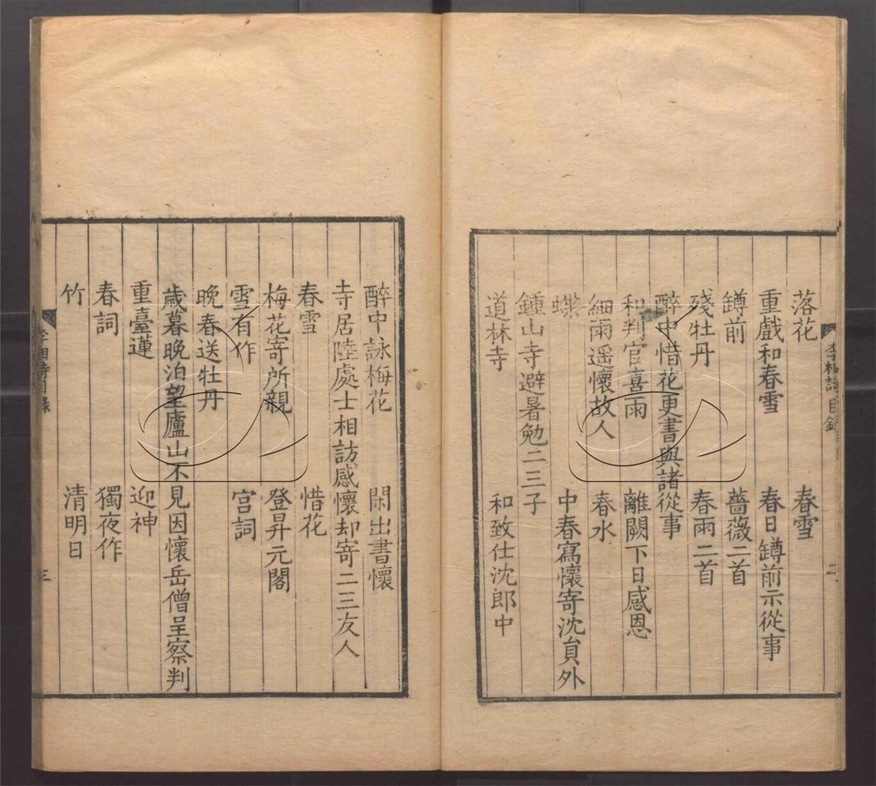 李相詩目錄 二
落花 春雪
重戲和春雪 春日罇前示從事
罇前 薔薇二首
殘牡丹 春雨二首
醉中惜花更書與諸從事
和判官喜雨 離闕下日感恩
細雨遥懷故人 春水
蝶 中春寫懷寄沈貟外
鍾山寺避暑勉二三子
道林寺 和致仕沈郎中
醉中詠梅花 閑出書懷
寺居陸處士相訪感懷却寄二三友人
春雪 惜花
梅花寄所親 登昇元閣
雪有作 宫詞
晚春送牡丹
歲暮晚泊望廬山不見因懷岳僧呈察判
重臺蓮 迎神
春詞 獨夜作
竹 清明日
李相詩目錄 三